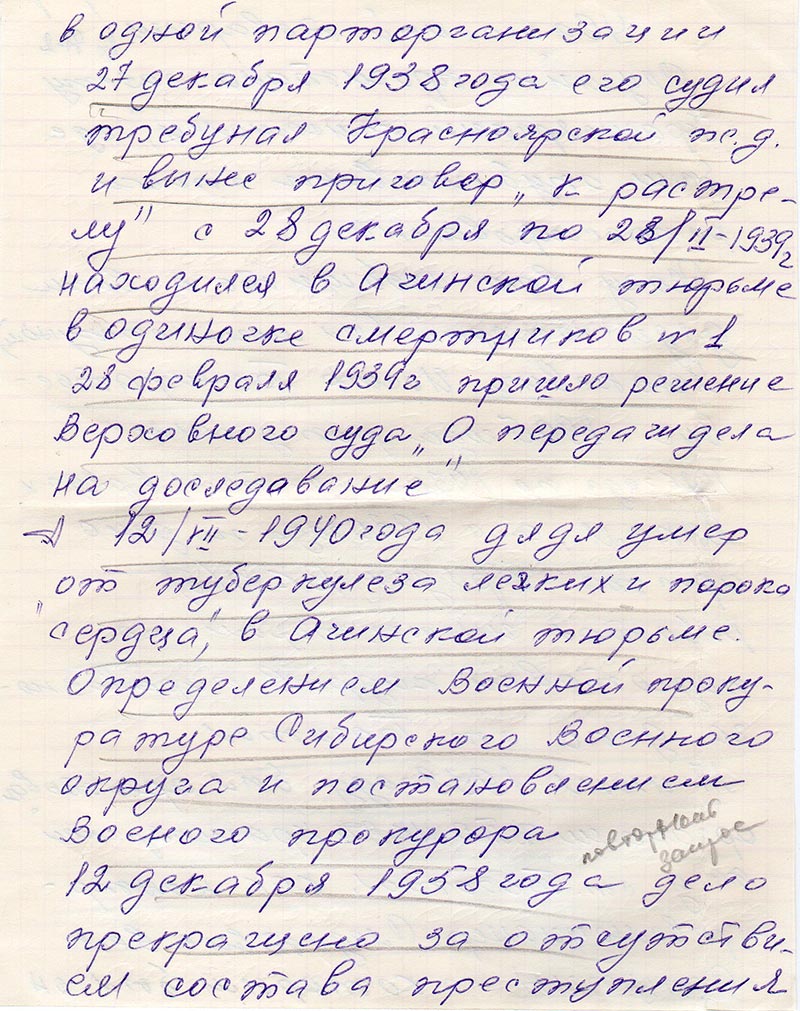 в одной парторганизации
27 декабря 1938 года его судил
требунал Красноярской ж.д.
и вынес приговор „к растре-
лу" с 28 декабря по 28/II-1939г
находился в Ачинской тюрьме
в одиночке смертников №1
28 февраля 1939г пришло решение
Верховного суда „О передачи дела
на доследавание"
12/XII-1940 года дядя умер
от туберкулеза легких и порока
"сердца", в Ачинской тюрьме.
Определением Военной проку-
ратуре Сибирского Военного
округа и постановлением
Военого прокурора
повторный
запрос
12 декабря 1958 года дело
прекращено за отсутстви-
ем состава преступления